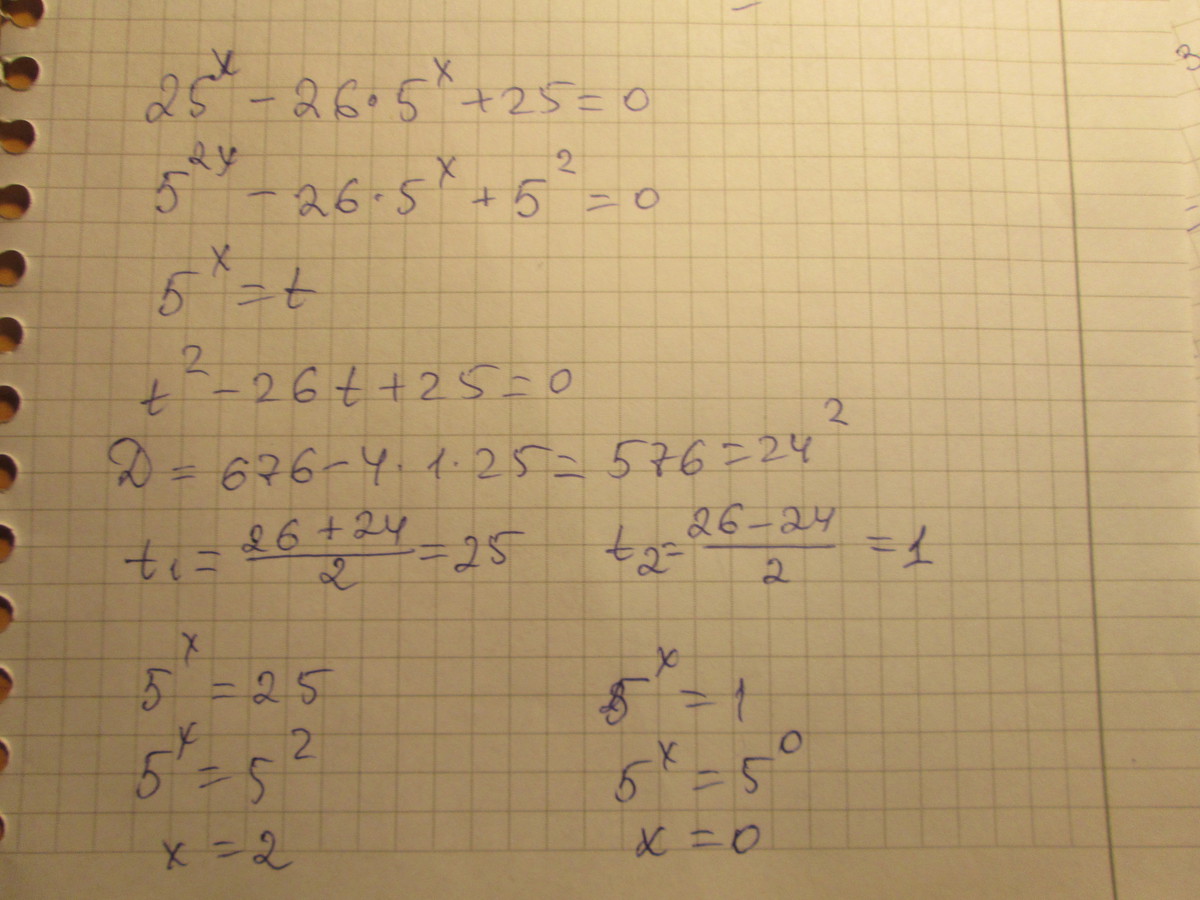 25^x - 26 · 5^x + 25 = 0
5^2x - 26 · 5^x + 5^2 = 0
5^x = t
t^2 - 26t + 25 = 0
D = 676 - 4 · 1 · 25 = 576 = 24^2
t1 = (26 + 24)/2 = 25 t2 = (26 - 24)/2 = 1
5^x = 25 5^x = 1
5^x = 5^2 5^x = 5^0
x = 2 x = 0